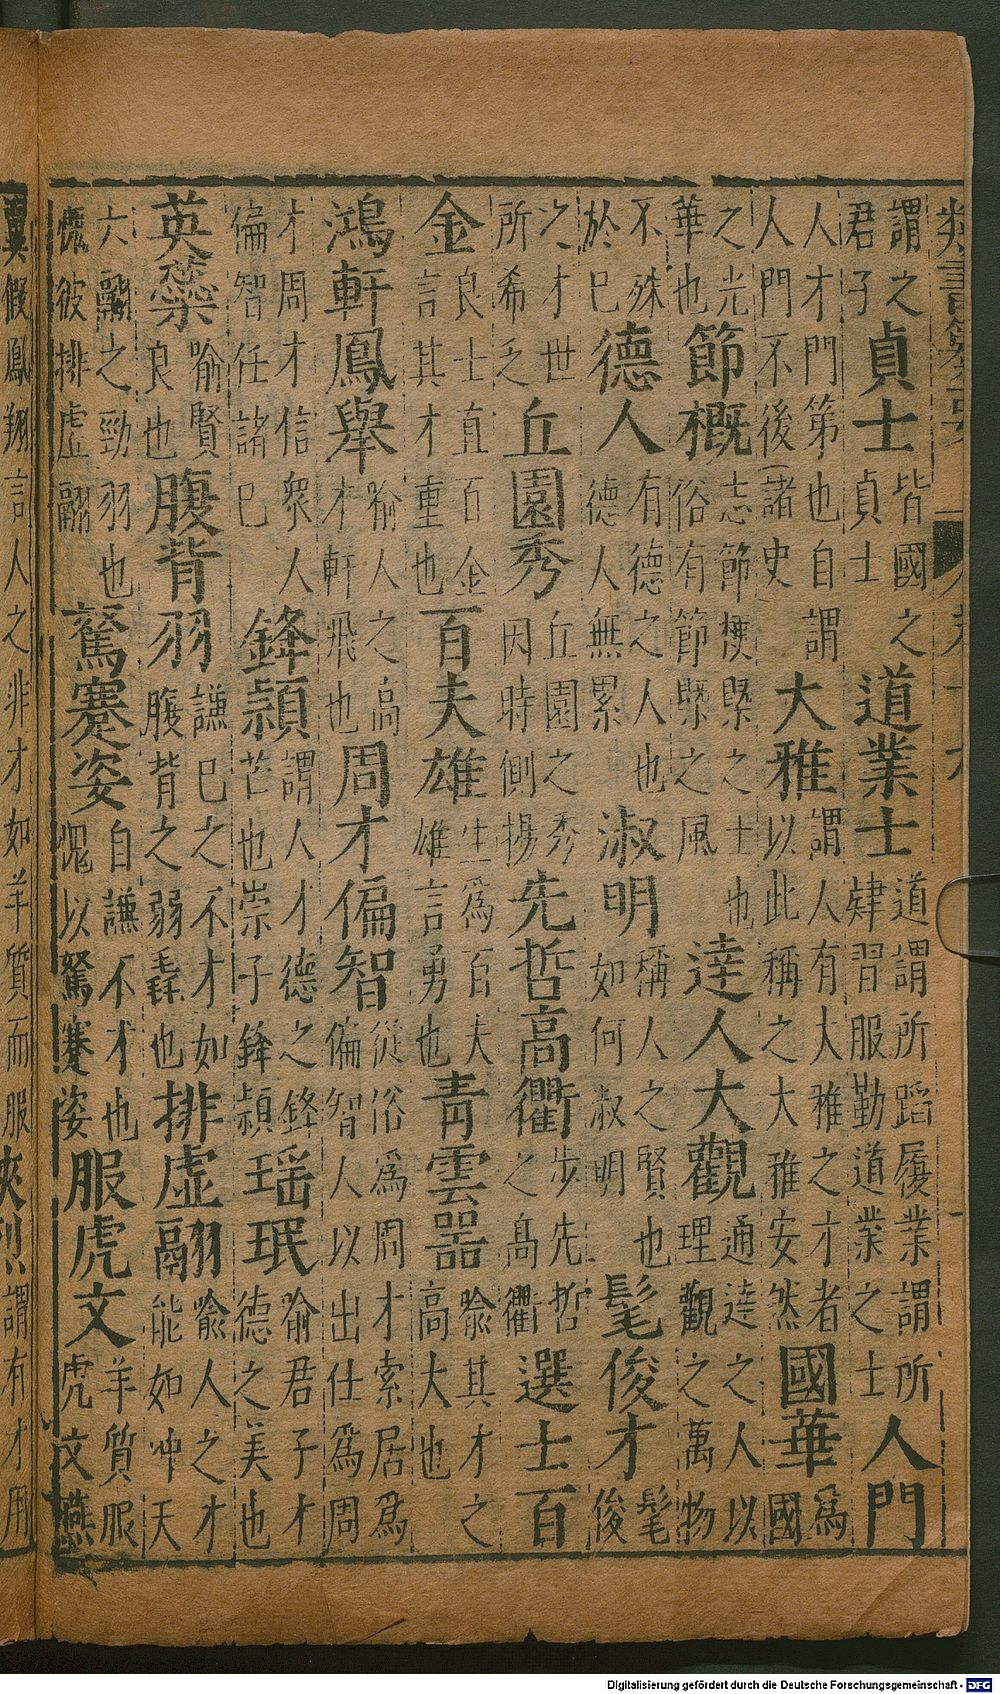 類書纂要
謂之君子貞士皆國之貞士道業士道謂所蹈履業謂所肄習服勤道業之士人門
人才門第也自謂人門不後(諸史大雅謂人有大雅之才者以此稱之大雅安然國華為國
之光華也節概志節梗槩之士也俗有節槩之風達人大觀通達之人以理觀之萬物
不殊於已德人有德之人也德人無累淑明稱人之賢也如何淑明髦俊才髦俊
之才世所希乏丘園秀丘園之秀因時側揚先哲高衢步先哲之高衢選士百
金良士直百金言其才重也百夫雄生為百夫雄言勇也青雲器喻其才之高大也
鴻軒鳳舉喻人之高才軒飛也周才偏智從俗為周才索居為偏智人以出仕為周
才周才信衆人偏智任諸已鋒頴謂人才德之鋒芒也崇子鋒頴瑶珉喻君子才德之美也
英蘂喻賢良也腹背羽謙已之不才如腹背之弱毳也排虛翮喻人之才能如冲天
六翮之勁羽也愧彼排虛翮駑蹇姿自謙不才也愧以駑蹇姿服虎文羊質服虎文燕
翼假鳳翔言人之非才如羊質而服謂有才用
Digitalisierung gefördert durch die Deutsche Forschungsgemeinschaft - DFG